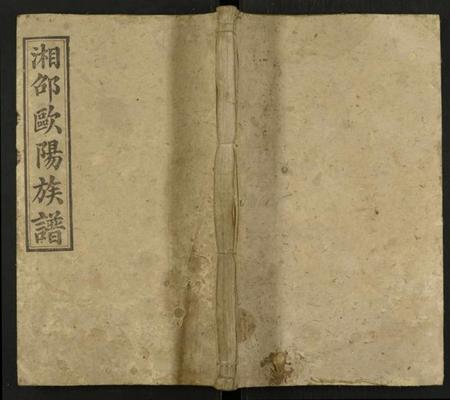 湘邵歐陽族譜